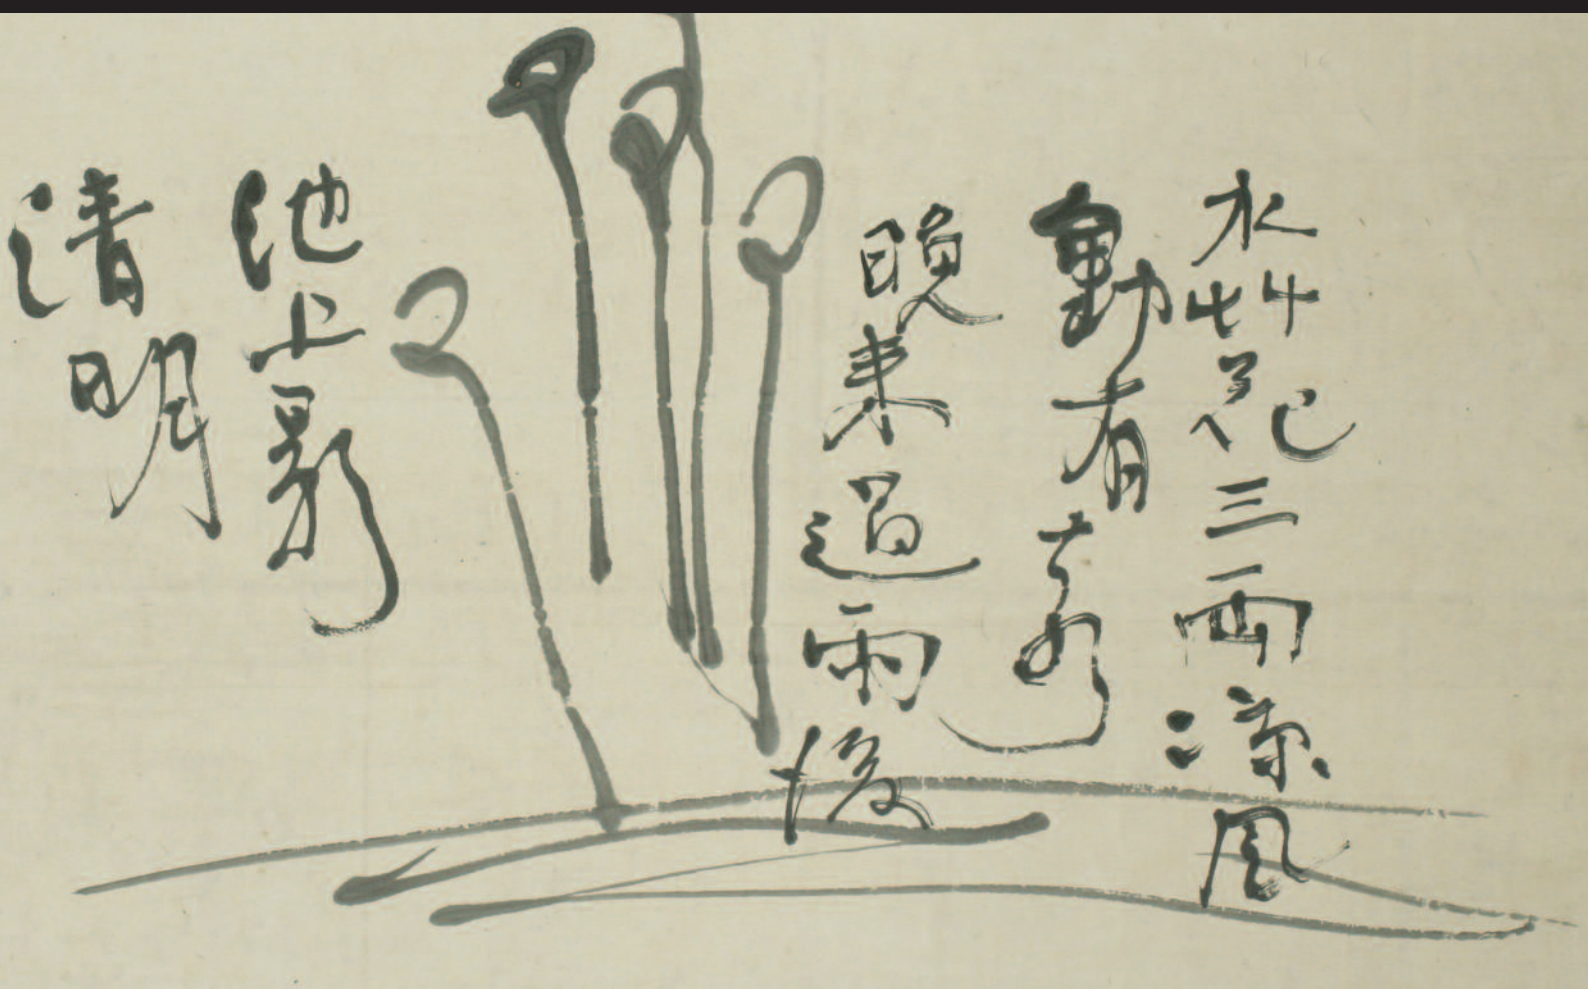 水艸花三両涼風
動有
晩来過雨後
池上影
清明